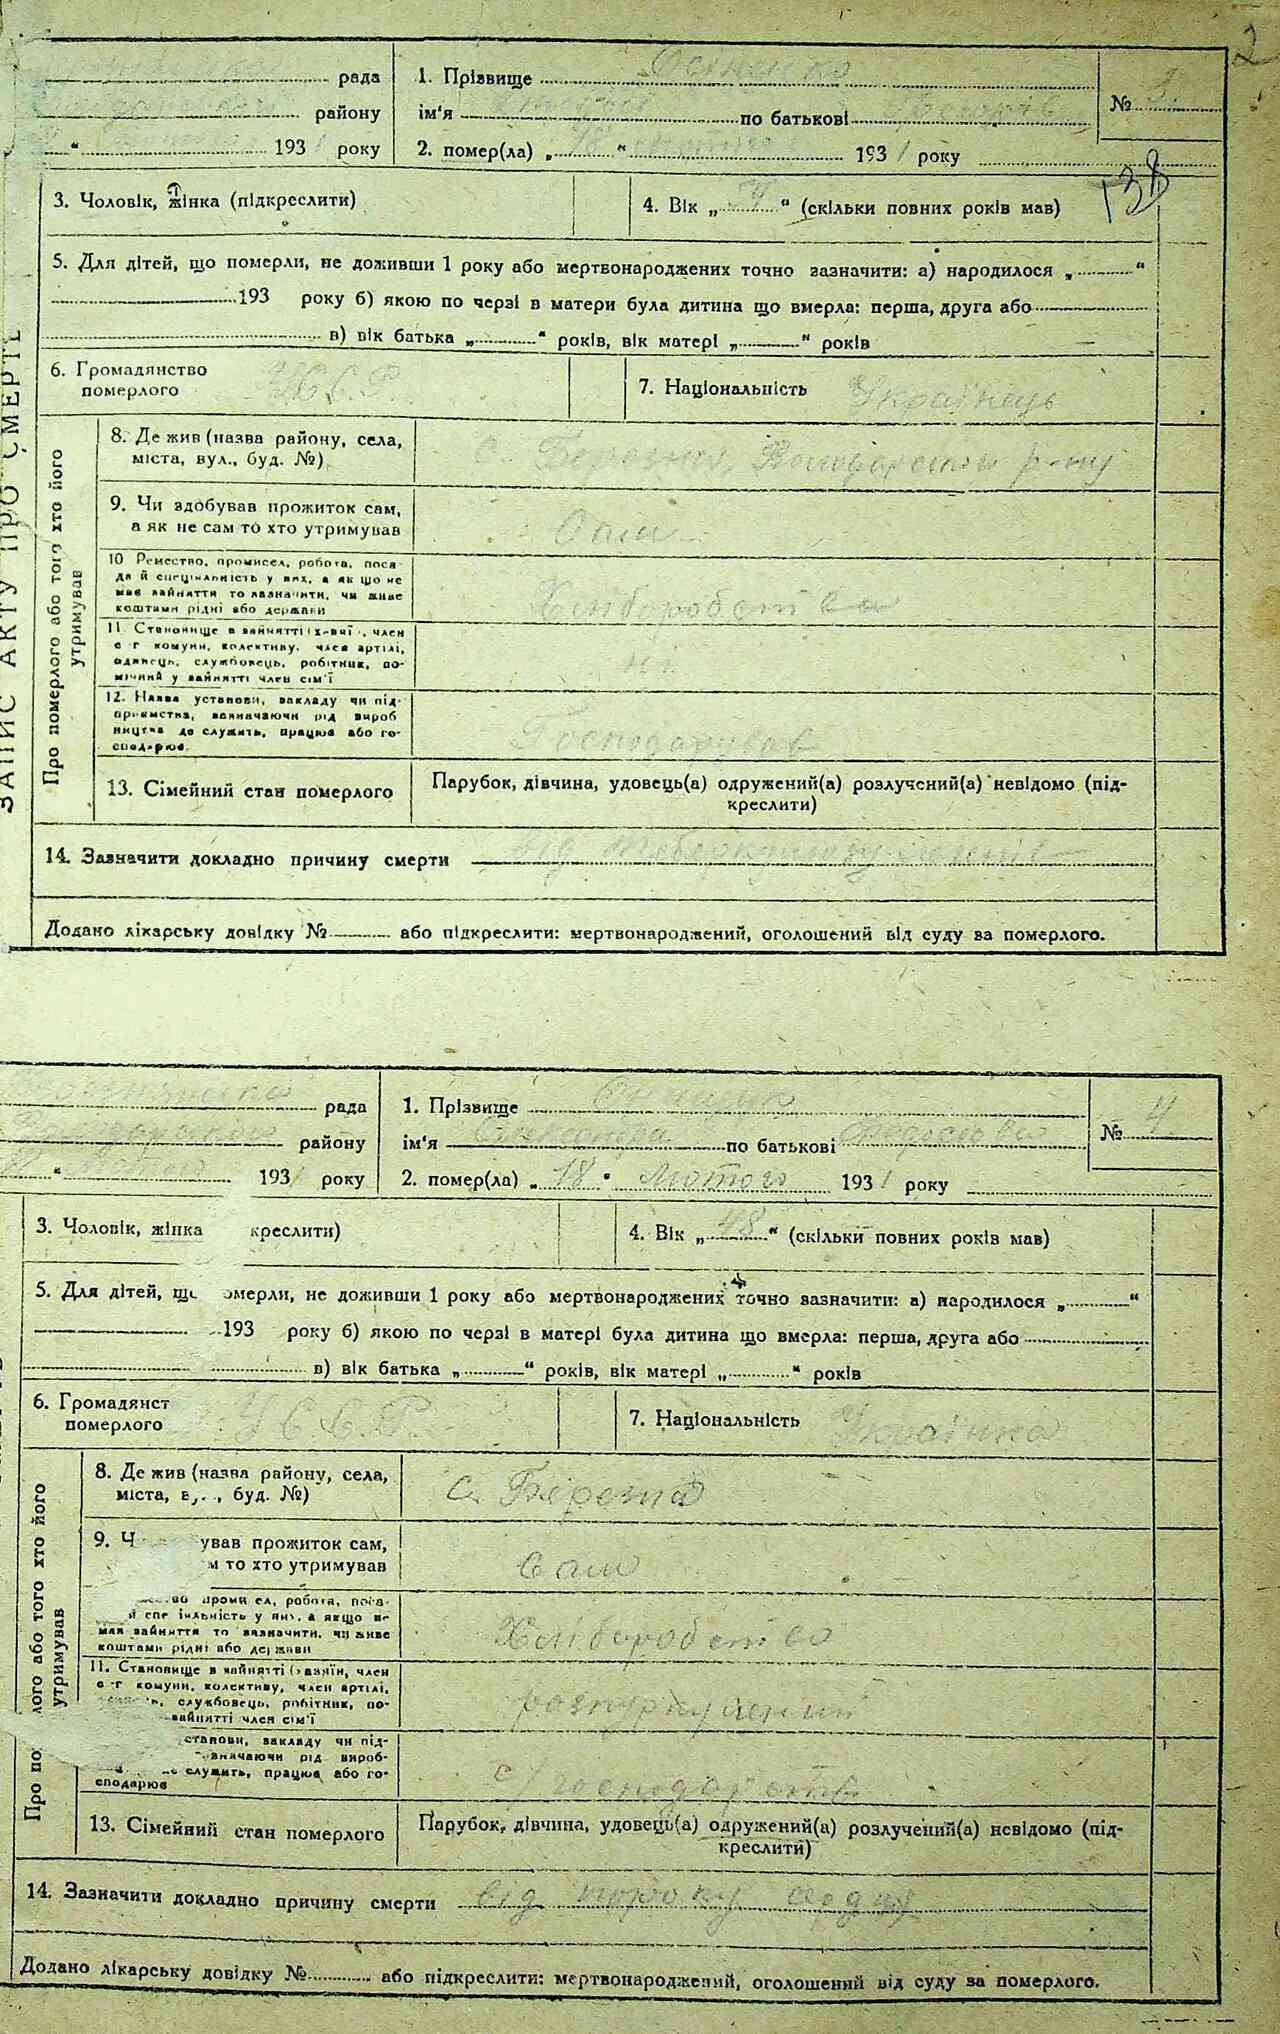 2
рада
району
" 1931 року
1. Прізвище
ім'я по батькові
2. помер(ла) „18" 1931 року
№ 3
138
ЗАПИС АКТУ ПРО СМЕРТЬ
3. Чоловік, жінка (підкреслити)
4. Вік „ " (скільки повних років мав)
5. Для дітей, що померли, не доживши 1 року або мертвонароджених точно зазначити: а) народилося „ "
193 року б) якою по черзі в матери була дитина що вмерла: перша, друга або
в) вік батька „ " років, вік матері „ " років
6. Громадянство
померлого
УССР
7. Національність Українець
Про померлого або того хто його
утримував
8. Де жив (назва району, села,
міста, вул., буд. №)
с. Володарського р-ну
9. Чи здобував прожиток сам,
а як не сам то хто утримував
Сам
10 Ремество, промисел, робота, поса
да й спеціяльність у них, а як що не
мав зайняття то зазначити, чи живе
коштами рідні або держави
Хліборобство
11. Становище в зайнятті член
с-г комуни, колективу, член артілі,
одинець, службовець, робітник, по-
мічний у зайнятті член сім'ї
12. Назва установи, закладу чи під-
приємства, зазначаючи рід вироб
ництва де служить, працює або го-
сподарює
Господарував
13. Сімейний стан померлого
Парубок, дівчина, удовець(а) одружений(а) розлучений(а) невідомо (під-
креслити)
14. Зазначити докладно причину смерти від туберкульозу легенів
Додано лікарську довідку № або підкреслити: мертвонароджений, оголошений від суду за померлого.
рада
району
" 1931 року
1. Прізвище
ім'я Олександра по батькові
2. помер(ла) „18" лютого 1931 року
№ 4
3. Чоловік, жінка креслити)
4. Вік „48" (скільки повних років мав)
5. Для дітей, що померли, не доживши 1 року або мертвонароджених точно зазначити: а) народилося „ "
193 року б) якою по черзі в матері була дитина що вмерла: перша, друга або
в) вік батька „ " років, вік матері „ " років
6. Громадянст
померлого
УССР
7. Національність Українка
лого або того хто його
утримував
8. Де жив (назва району, села,
міста, в , буд. №)
с.
9. Ч ував прожиток сам,
м то хто утримував
Сам
роми ел, робота, поса-
й спе іяльність у них, а якщо не
мав зайняття то зазначити, чи живе
коштами рідні або держави
Хліборобство
11. Становище в зайнятті (хазяїн, член
с-г комуни, колективу, член артілі,
службовець, робітник, по-
зайнятті член сім'ї
розкуркулений
станови, закладу чи під-
значаючи рід вироб-
служить, працює або го-
сподарює
с/господарство
13. Сімейний стан померлого
Парубок, дівчина, удовець(а) одружений(а) розлучений(а) невідомо (під-
креслити)
14. Зазначити докладно причину смерти від пороку серця
Додано лікарську довідку № або підкреслити: мертвонароджений, оголошений від суду за померлого.